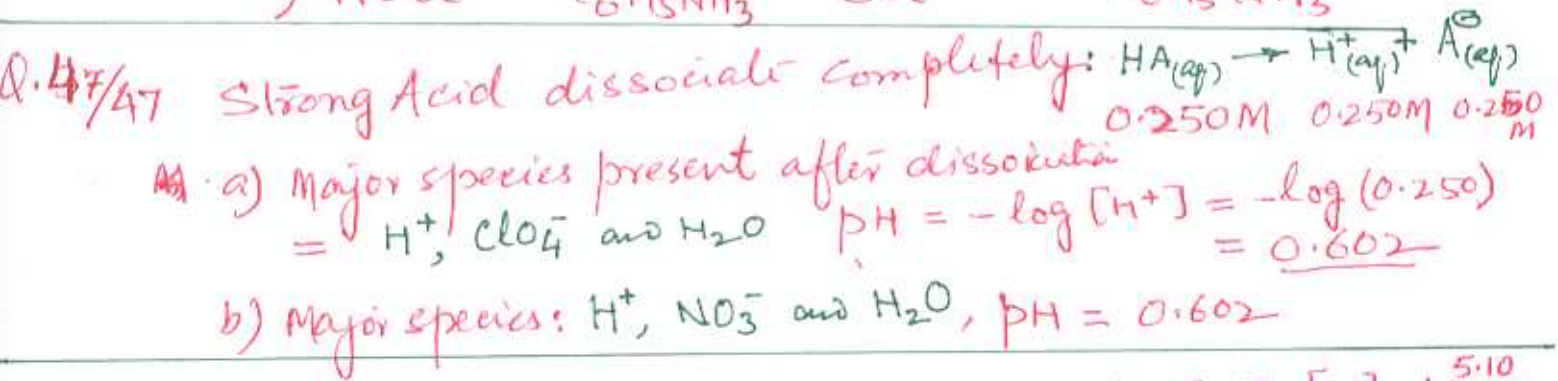 Q.47/47 Strong Acid dissociate completely: HA(aq) → H⁺(aq) + A⊖(aq)
0.250M 0.250M 0.250 M
a) Major species present after
= H⁺, ClO₄⁻ and H₂O pH = -log [H⁺] = -log (0.250)
= 0.602
b) Major species: H⁺, NO₃⁻ and H₂O, pH = 0.602
5.10